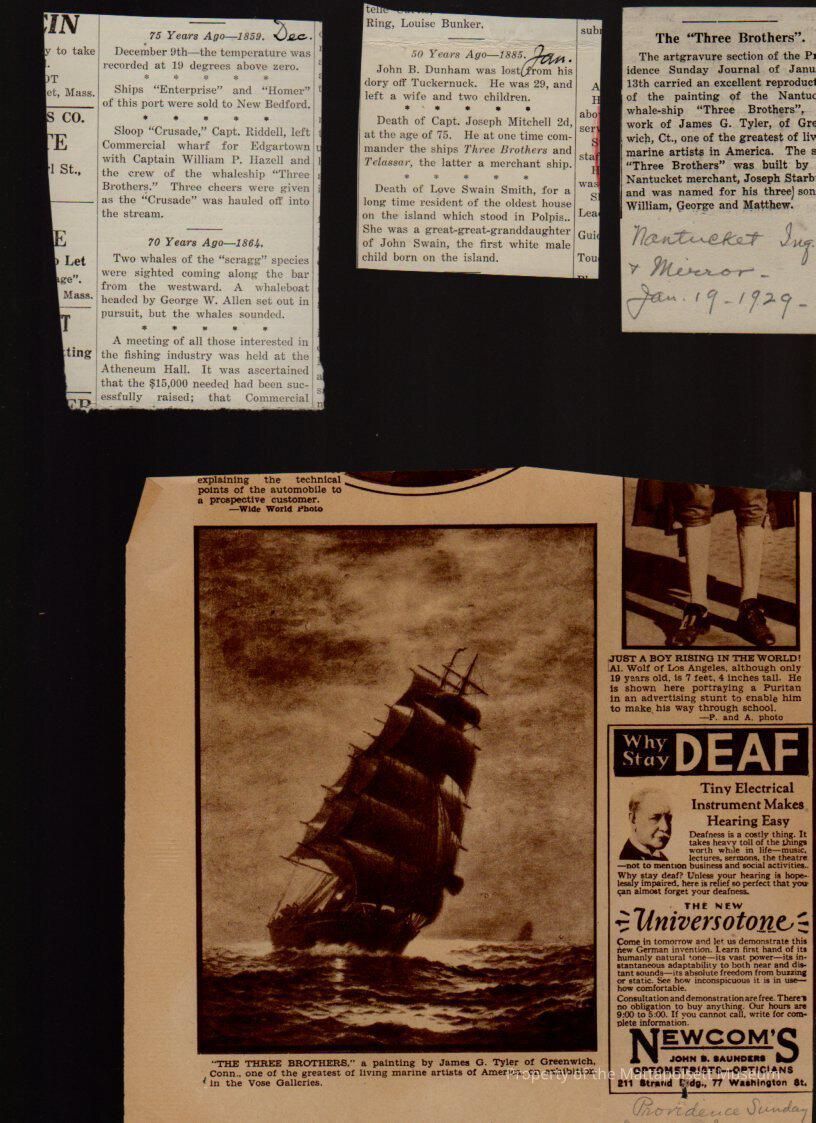 EIN
y to take
OT
et, Mass.
S CO.
TE
l St.,
E
o Let
age".
Mass.
T
tting
ER
75 Years Ago—1859. Dec.
December 9th—the temperature was
recorded at 19 degrees above zero.
* * * * *
Ships "Enterprise" and "Homer"
of this port were sold to New Bedford.
* * * * *
Sloop "Crusade," Capt. Riddell, left
Commercial wharf for Edgartown
with Captain William P. Hazell and
the crew of the whaleship "Three
Brothers." Three cheers were given
as the "Crusade" was hauled off into
the stream.
70 Years Ago—1864.
Two whales of the "scragg" species
were sighted coming along the bar
from the westward. A whaleboat
headed by George W. Allen set out in
pursuit, but the whales sounded.
* * * * *
A meeting of all those interested in
the fishing industry was held at the
Atheneum Hall. It was ascertained
that the $15,000 needed had been suc-
essfully raised; that Commercial
Ring, Louise Bunker.
50 Years Ago—1885. Jan.
John B. Dunham was lost from his
dory off Tuckernuck. He was 29, and
left a wife and two children.
* * * * *
Death of Capt. Joseph Mitchell 2d,
at the age of 75. He at one time com-
mander the ships Three Brothers and
Telassar, the latter a merchant ship.
* * * * *
Death of Love Swain Smith, for a
long time resident of the oldest house
on the island which stood in Polpis..
She was a great-great-granddaughter
of John Swain, the first white male
child born on the island.
subr
A
H
abo
serv
S
staf
H
was
Sl
Lea
Guid
Tou
The "Three Brothers".
The artgravure section of the Pr
idence Sunday Journal of Janu
13th carried an excellent reproduct
of the painting of the Nantuc
whale-ship "Three Brothers",
work of James G. Tyler, of Gre
wich, Ct., one of the greatest of liv
marine artists in America. The s
"Three Brothers" was built by
Nantucket merchant, Joseph Starb
and was named for his three son
William, George and Matthew.
Nantucket Inq.
& Mirror-
Jan. 19-1929-
explaining the technical
points of the automobile to
a prospective customer.
—Wide World Photo
"THE THREE BROTHERS," a painting by James G. Tyler of Greenwich,
Conn., one of the greatest of living marine artists of America, on exhibition
in the Vose Galleries.
JUST A BOY RISING IN THE WORLD!
Al. Wolf of Los Angeles, although only
19 years old, is 7 feet, 4 inches tall. He
is shown here portraying a Puritan
in an advertising stunt to enable him
to make his way through school.
—P. and A. photo
Why Stay DEAF
Tiny Electrical
Instrument Makes
Hearing Easy
Deafness is a costly thing. It
takes heavy toll of the things
worth while in life—music,
lectures, sermons, the theatre
—not to mention business and social activities..
Why stay deaf? Unless your hearing is hope-
lessly impaired, here is relief so perfect that you
can almost forget your deafness.
THE NEW
Universotone
Come in tomorrow and let us demonstrate this
new German invention. Learn first hand of its
humanly natural tone—its vast power—its in-
stantaneous adaptability to both near and dis-
tant sounds—its absolute freedom from buzzing
or static. See how inconspicuous it is in use—
how comfortable.
Consultation and demonstration are free. There's
no obligation to buy anything. Our hours are
9:00 to 5:00. If you cannot call, write for com-
plete information.
NEWCOM'S
JOHN B. SAUNDERS
OPTOMETRISTS—OPTICIANS
211 Strand Bldg., 77 Washington St.
Property of the Mattapoisett Museum
Providence Sunday